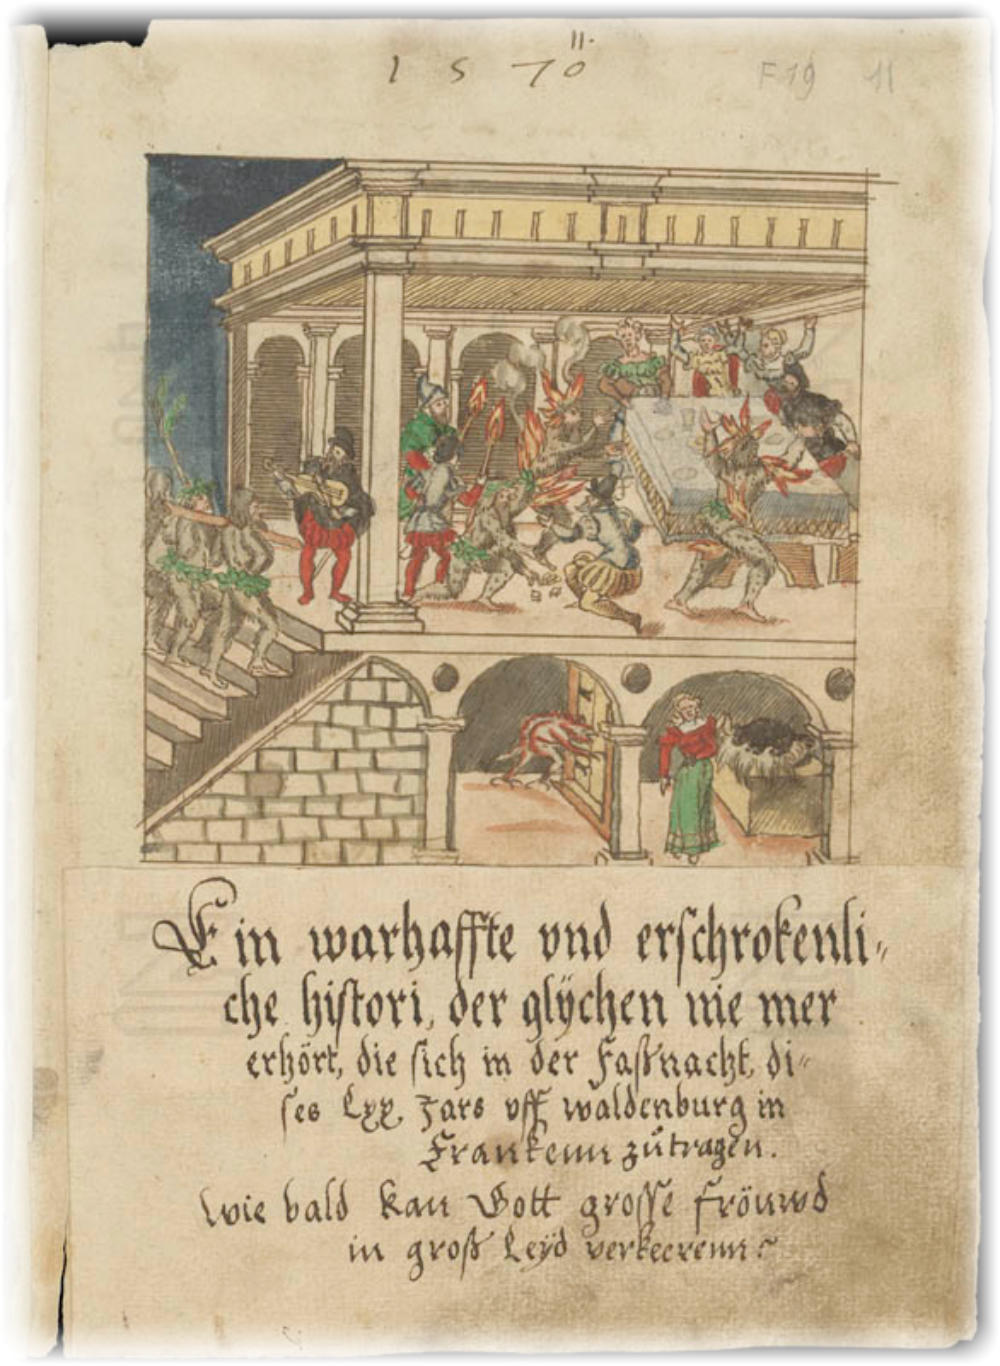 II.
1 5 7 0
F 19 11
Ein warhaffte vnd erschrokenli-
che histori, der glÿchen nie mer
erhört, die sich in der Fassnacht, di-
ses Lxx. Jars vff waldenburg in
Frankenn zůtragen.
Wie bald kan Gott grosse fröuwd
in groß Leÿd verkeerenn?